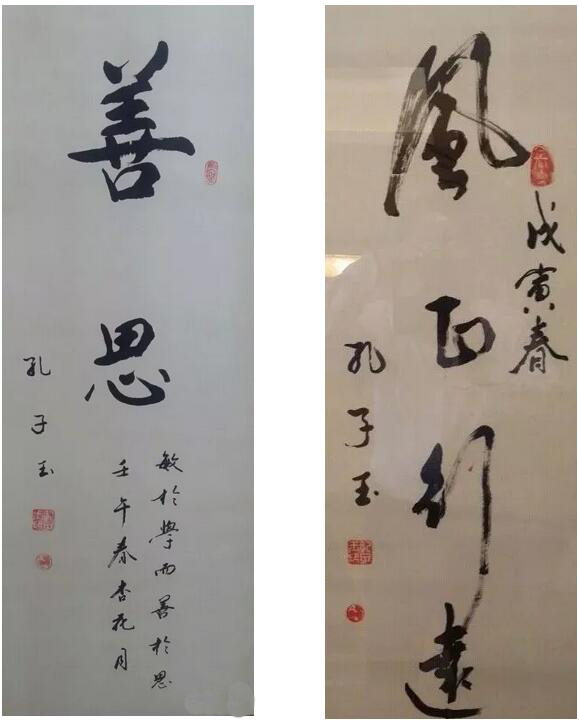 善思
敏於學而善於思
壬午春杏花月
孔子玉
戊寅春
風正行遠
孔子玉